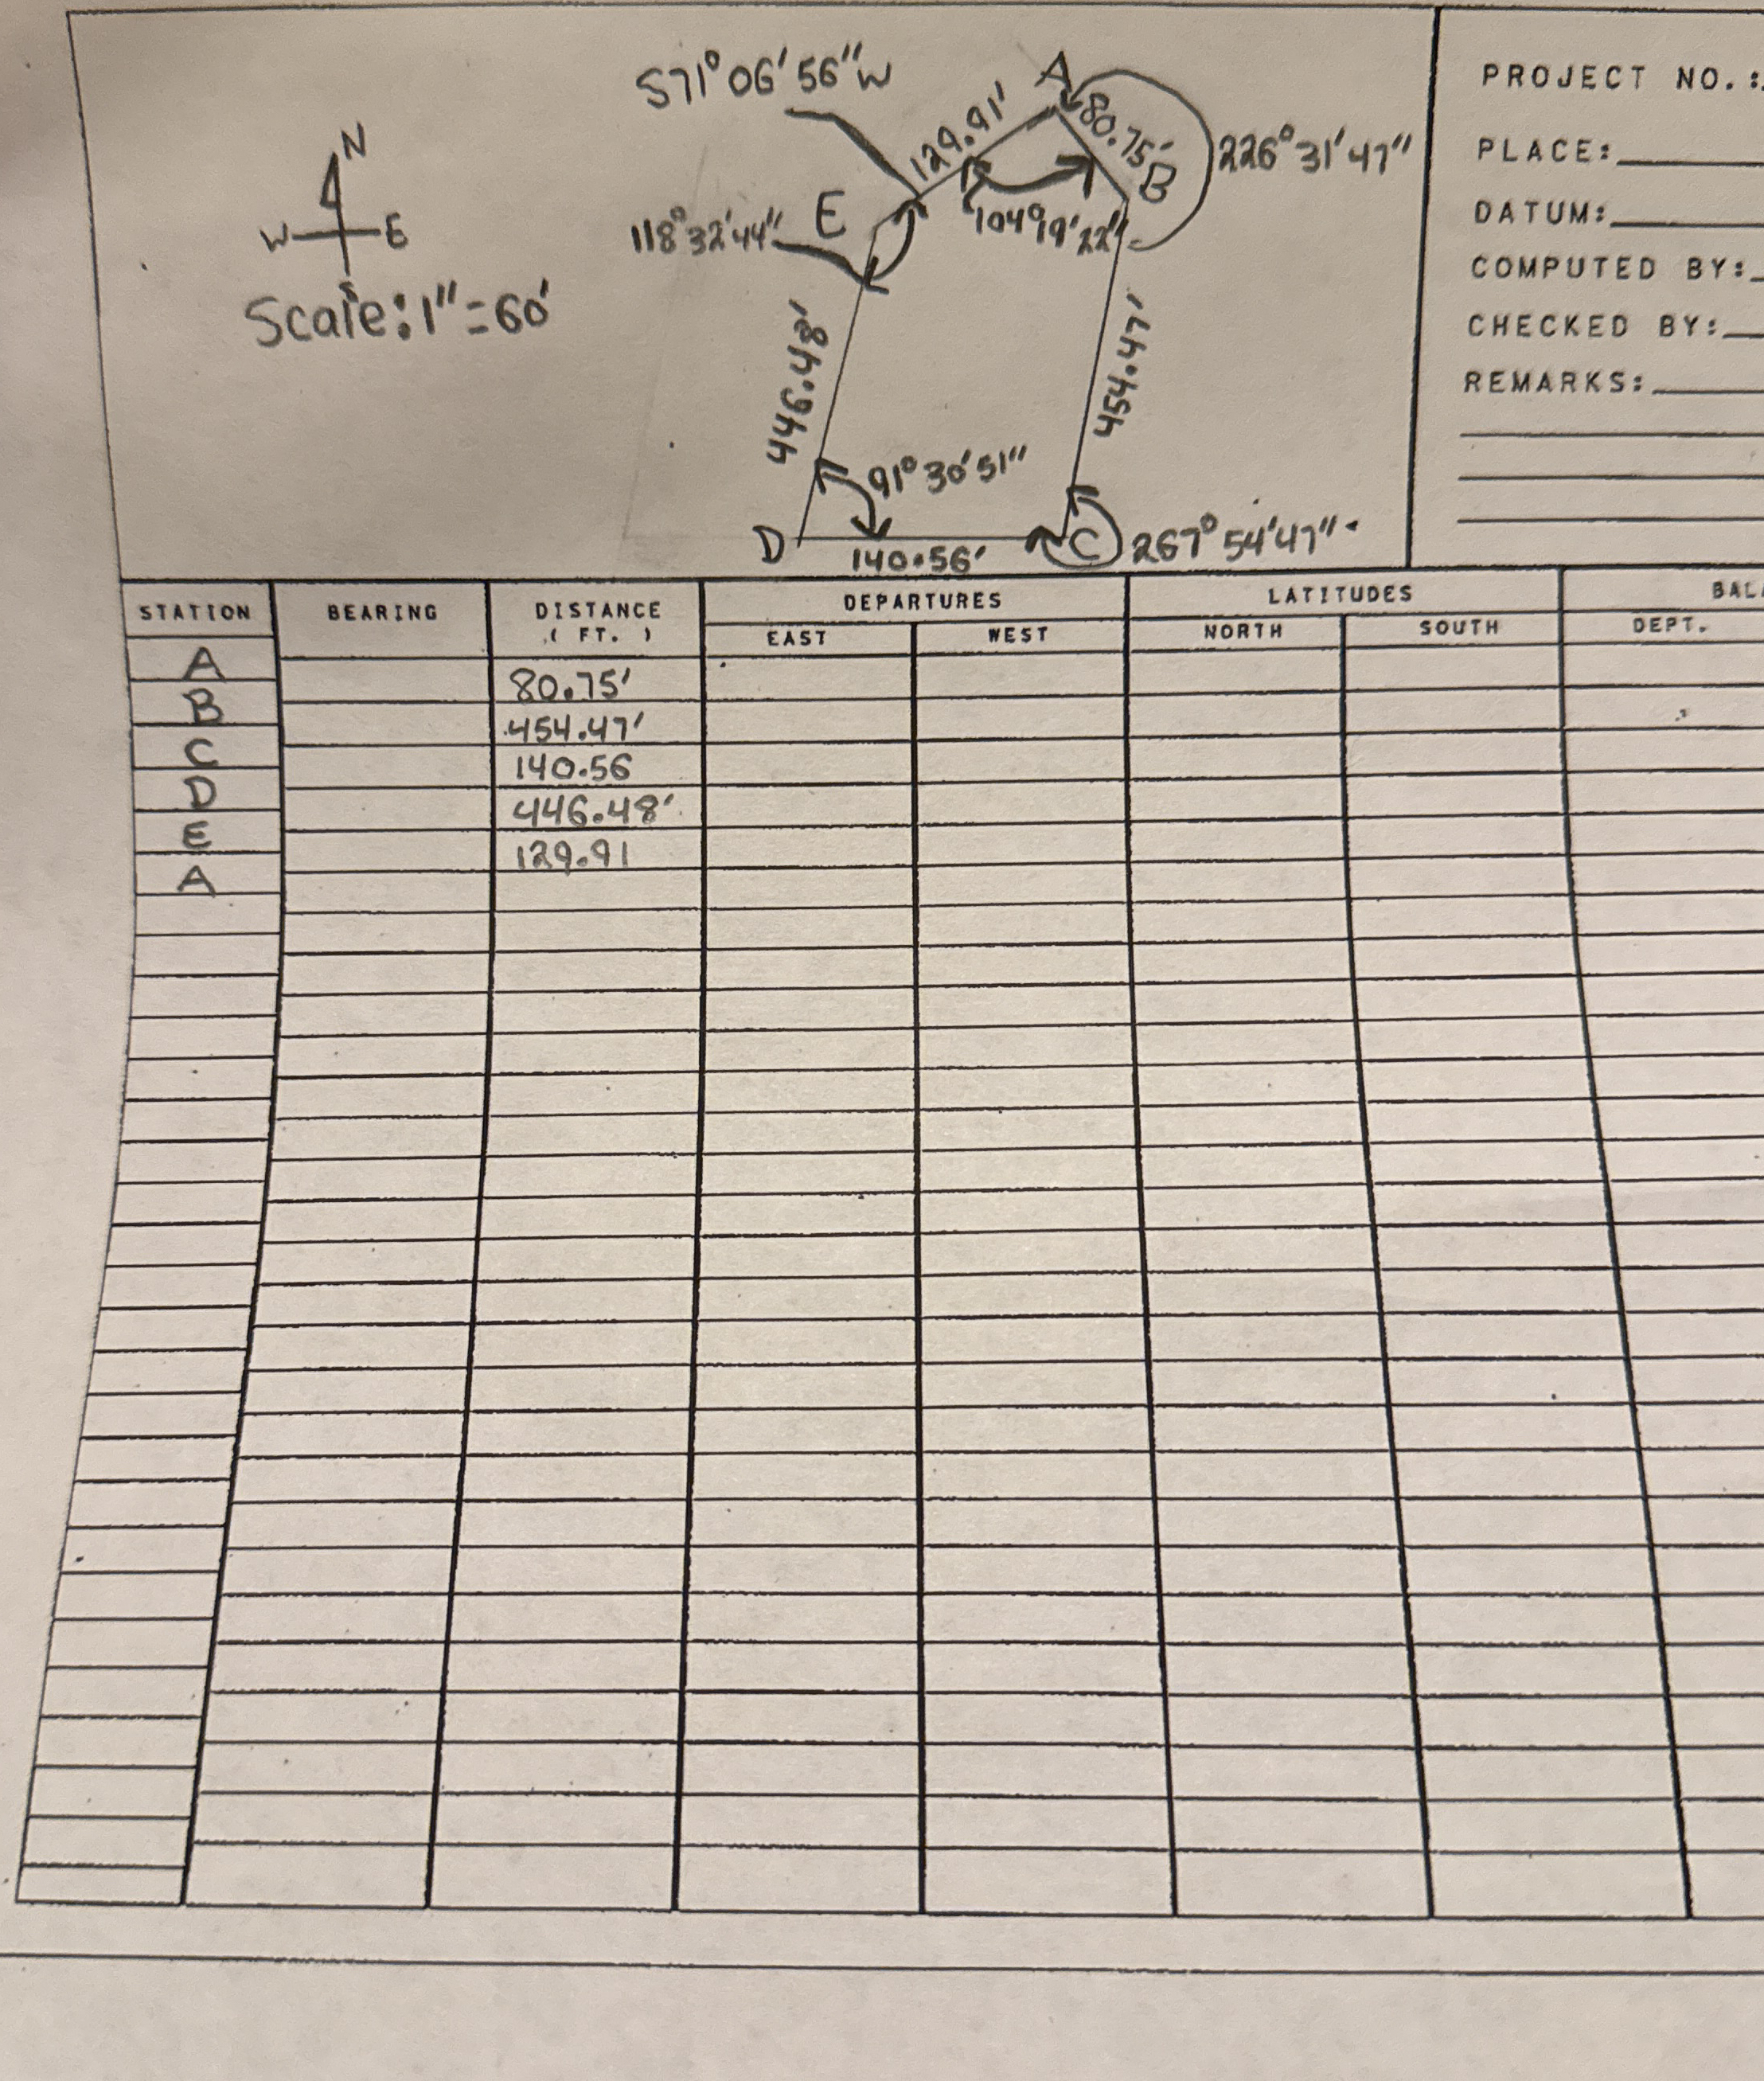 S71°06'56"W
A
129.91'
80.75'
226°31'47"
B
N
W E
E
118°32'44"
104°19'22"
Scale: 1"=60'
446.48'
454.47'
91°30'51"
D
C
267°54'47"
140.56'
PROJECT NO.:
PLACE:
DATUM:
COMPUTED BY:
CHECKED BY:
REMARKS:
STATION BEARING DISTANCE (FT.) DEPARTURES LATITUDES
EAST WEST NORTH SOUTH DEPT.
A
80.75'
B
454.47'
C
140.56
D
446.48'
E
129.91
A